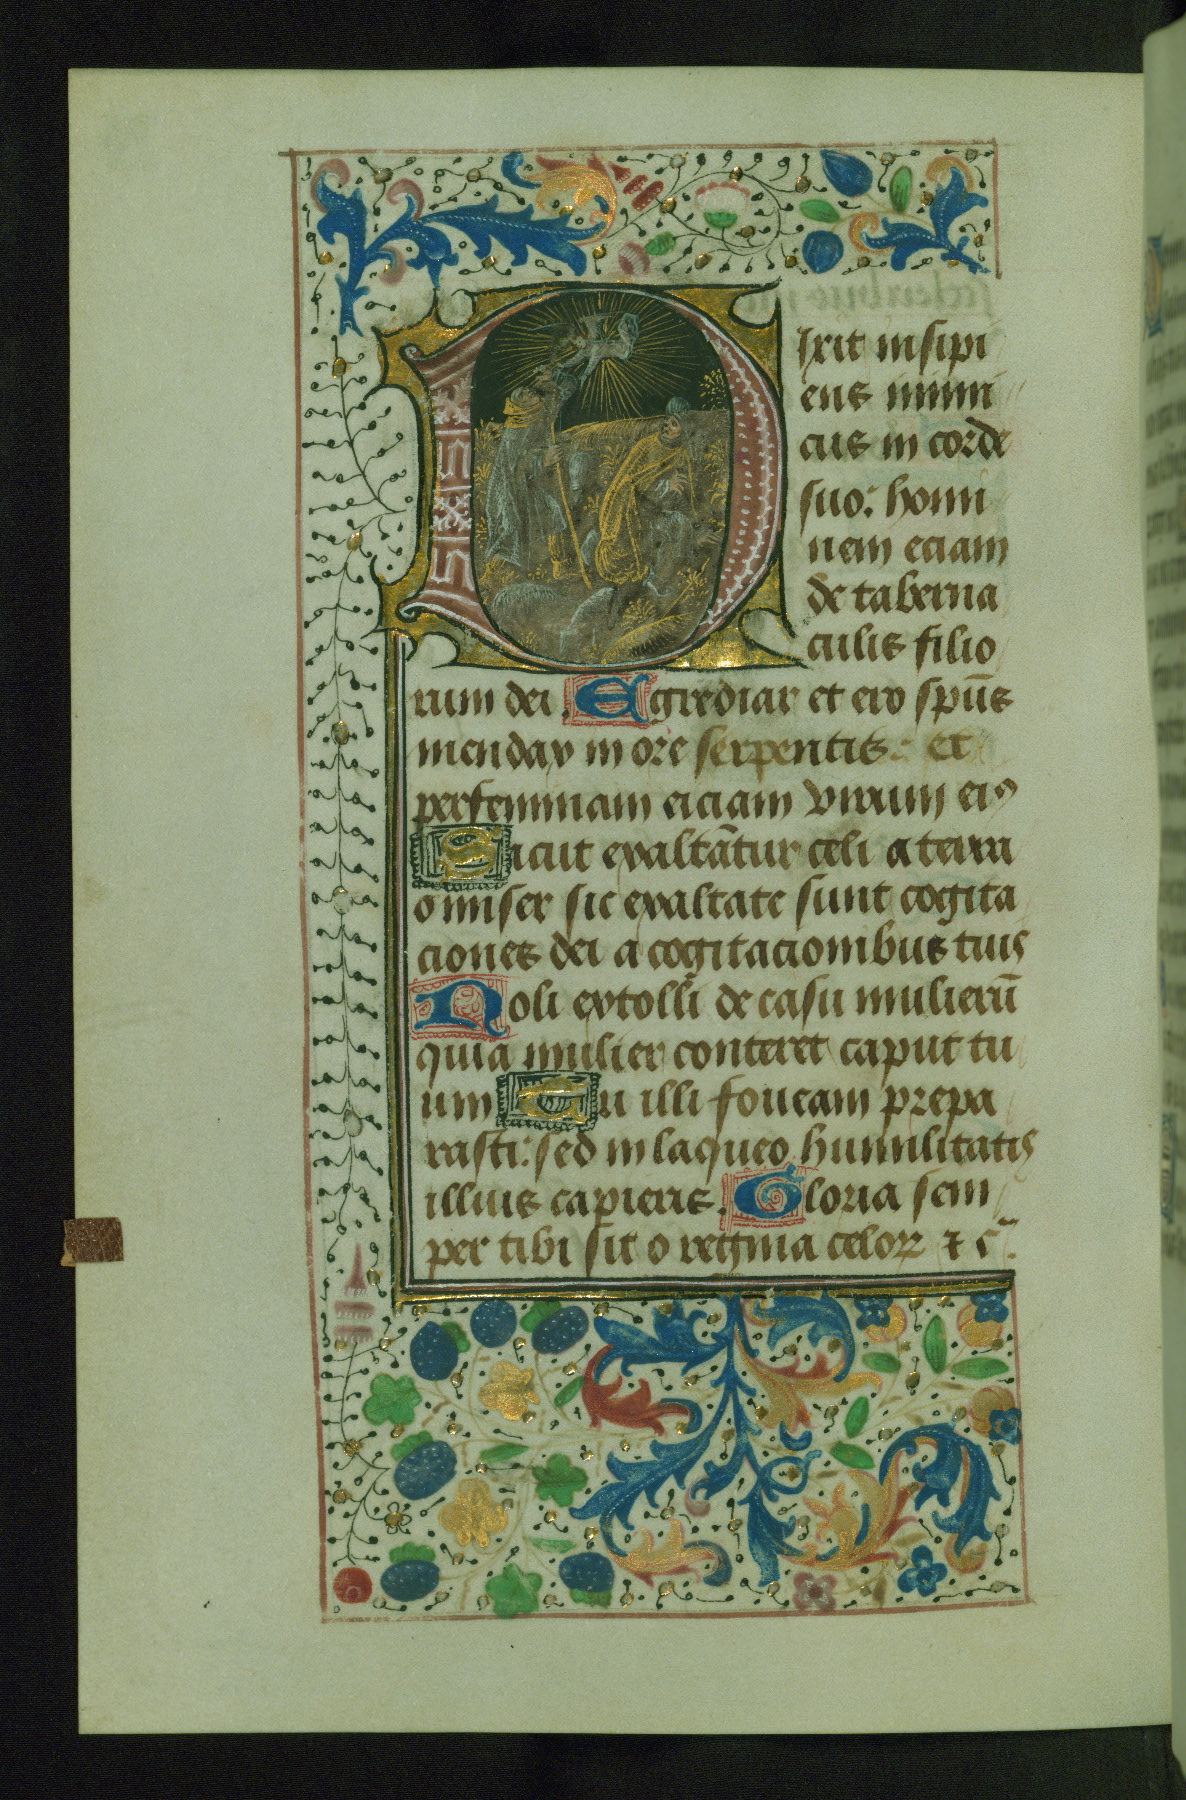 Dixit insipi
ens inimi
cus in corde
suo: homi
nem eciam
de taberna
culis filio
rum dei. Egrediar et ero spūs
mendax in ore serpentis: et
per feminam eiciam virum eiꝯ
Sicut exaltātur celi a terra
o miser sic exaltate sunt cogita
ciones dei a cogitacionibus tuis
Noli extolli de casu mulierū
quia mulier conteret caput tu
um Tu illi foueam prepa
rasti: sed in laqueo humilitatis
illius capieris. Gloria sem
per tibi sit o regina celoꝝ ⁊ c̄.